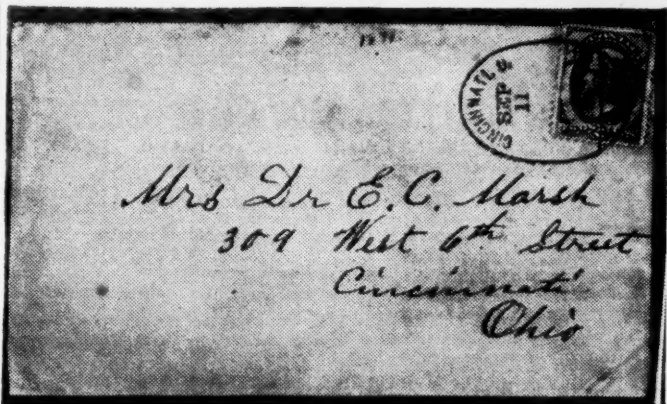 CINCINNATI, O
SEP
11
Mrs Dr E. C. Marsh
309 West 6th Street
Cincinnati
Ohio